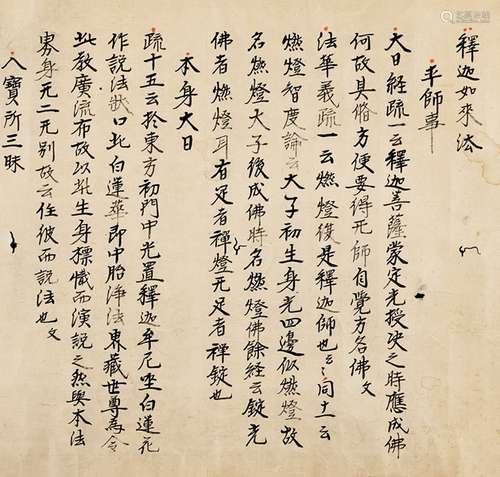 釋迦如來法
本師事
大日経疏一云釋迦菩薩蒙定光授决之時應成佛
何故具脩方便要得无師自覺方名佛文
法華義疏一云燃燈復是釋迦師也云〻同十一云
燃燈智度論云大子初生身光四邊似燃燈故
名燃燈大子後成佛時名燃燈佛餘経云錠光
佛者燃燈耳有足者禪燈无足者禅錠也
本身大日
疏十五云於東方初門中先置釋迦牟尼坐白蓮花
作説法狀 此白蓮華即中胎浄法界藏世尊為令
此教廣流布故以此生身標幟而演説之然與本法
界身无二无別故云住彼而説法也文
入寶所三昧